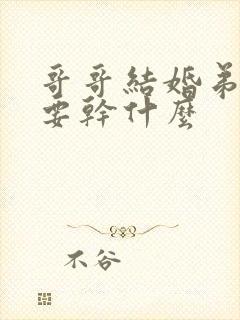 哥哥結婚弟
要幹什麼
不谷